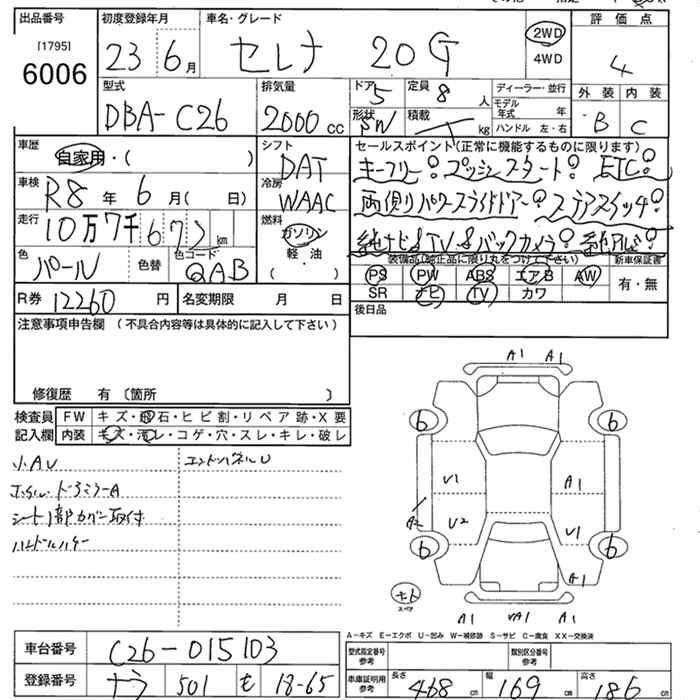 出品番号 初度登録年月 車名・グレード 評価点
[1795]
6006
23 6月 セレナ 20G 2WD 4WD 4
型式 排気量 ドア 5 定員 8人 ディーラー・並行 外装 内装
DBA-C26 2000cc 形状 積載 kg モデル年式 年 B C
ハンドル 左・右
車歴 自家用・( ) シフト DAT
セールスポイント(正常に機能するものに限ります)
キーフリー。プッシュスタート。ETC。
車検 R8年 6月( 日) 冷房 WAAC
両側リパワースライドドアー。ステアスイッチ。
走行 10万7千672km 燃料 ガソリン 軽・油 ( )
純ナビ&TV&バックカメラ。純アルミ。
色 パール 色替 色コード QAB
装備品(純正品に限り丸をつけて下さい) 新車保証書
PS PW ABS エアB AW 有・無
SR ナビ TV カワ
R券 12260円 名変期限 月 日
後日品
注意事項申告欄 (不具合内容等は具体的に記入して下さい)
修復歴 有 〔箇所 〕
検査員 FW キズ・飛石・ヒビ割・リペア跡・X要
記入欄 内装 キズ・汚レ・コゲ・穴・スレ・キレ・破レ
小AU エンドパネルU
ホイル・ドアミラーA
シート1部カバー取付
ハンドルハゲ
A1 A1
6 6
U1 A1
A2 U2 U1
6 6
A1
スペア
A1 A1
A-キズ E-エクボ U-凹み W-補修跡 S-サビ C-腐食 XX-交換済
車台番号 C26-015103
型式指定番号 参考 類別区分番号 参考
登録番号 ナラ 501 も 18-65
車庫証明用 参考 長さ 468cm 幅 169cm 高さ 186cm